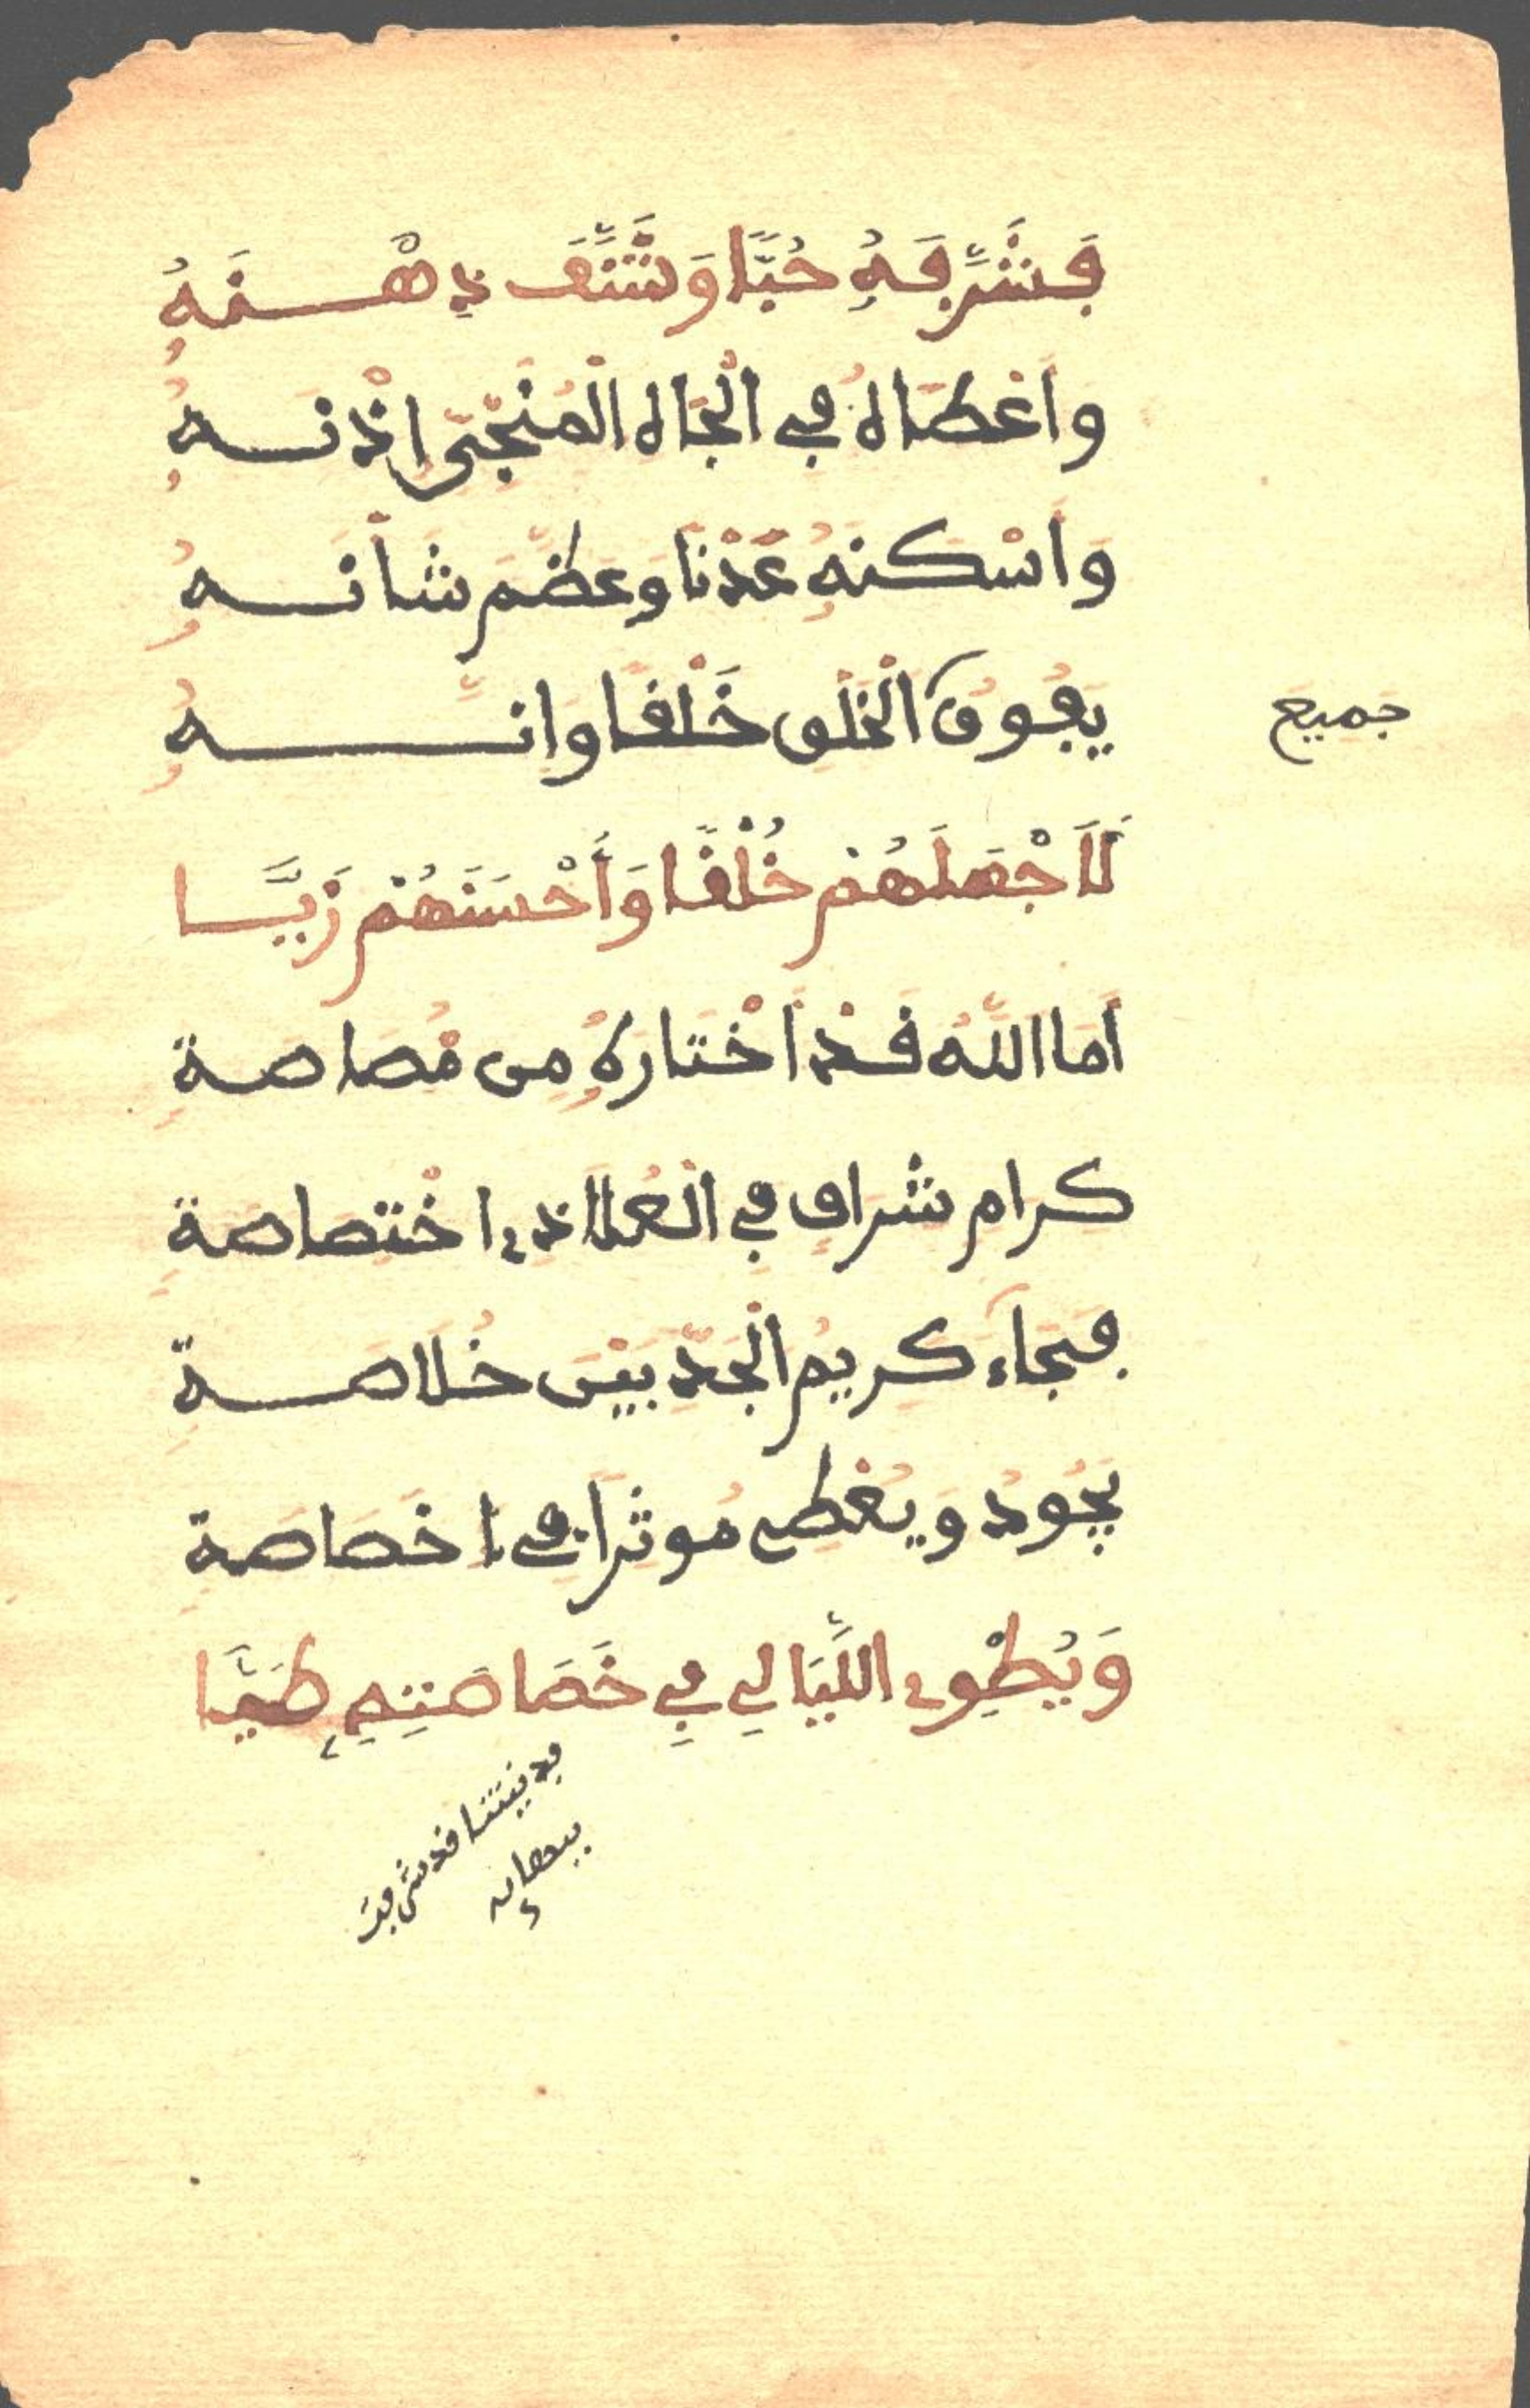 فَشَرَّفَهُ حُبًّا وَشَنَّفَ ذِهْنَهُ
وَأَعْطَاهُ فِي الْجَاهِ الْمُنَجِّي إِذْنَهُ
وَأَسْكَنَهُ عَدْنًا وَعَظَّمَ شَأْنَهُ
يَفُوقُ الْخَلْقِ خَلْقًا وَإِنَّهُ
جميع
لَأَجْمَلُهُمْ خُلْقًا وَأَحْسَنُهُمْ زَيًّا
أَمَا اللَّهُ قَدْ اخْتَارَهُ مِنْ مُصَاصَةِ
كِرَامٍ شِرَافٍ فِي الْعُلَا ذِي اخْتِصَاصَةِ
فَجَاءَ كَرِيمُ الْجَدِّ بَيْنَ خُلَاصَةِ
يَجُودُ وَيُعْطِي مُوثِرًا فِي خَصَاصَةِ
وَيُطْوِي اللَّيَالِي فِي خَصَاصَتِهِ طَيًّا